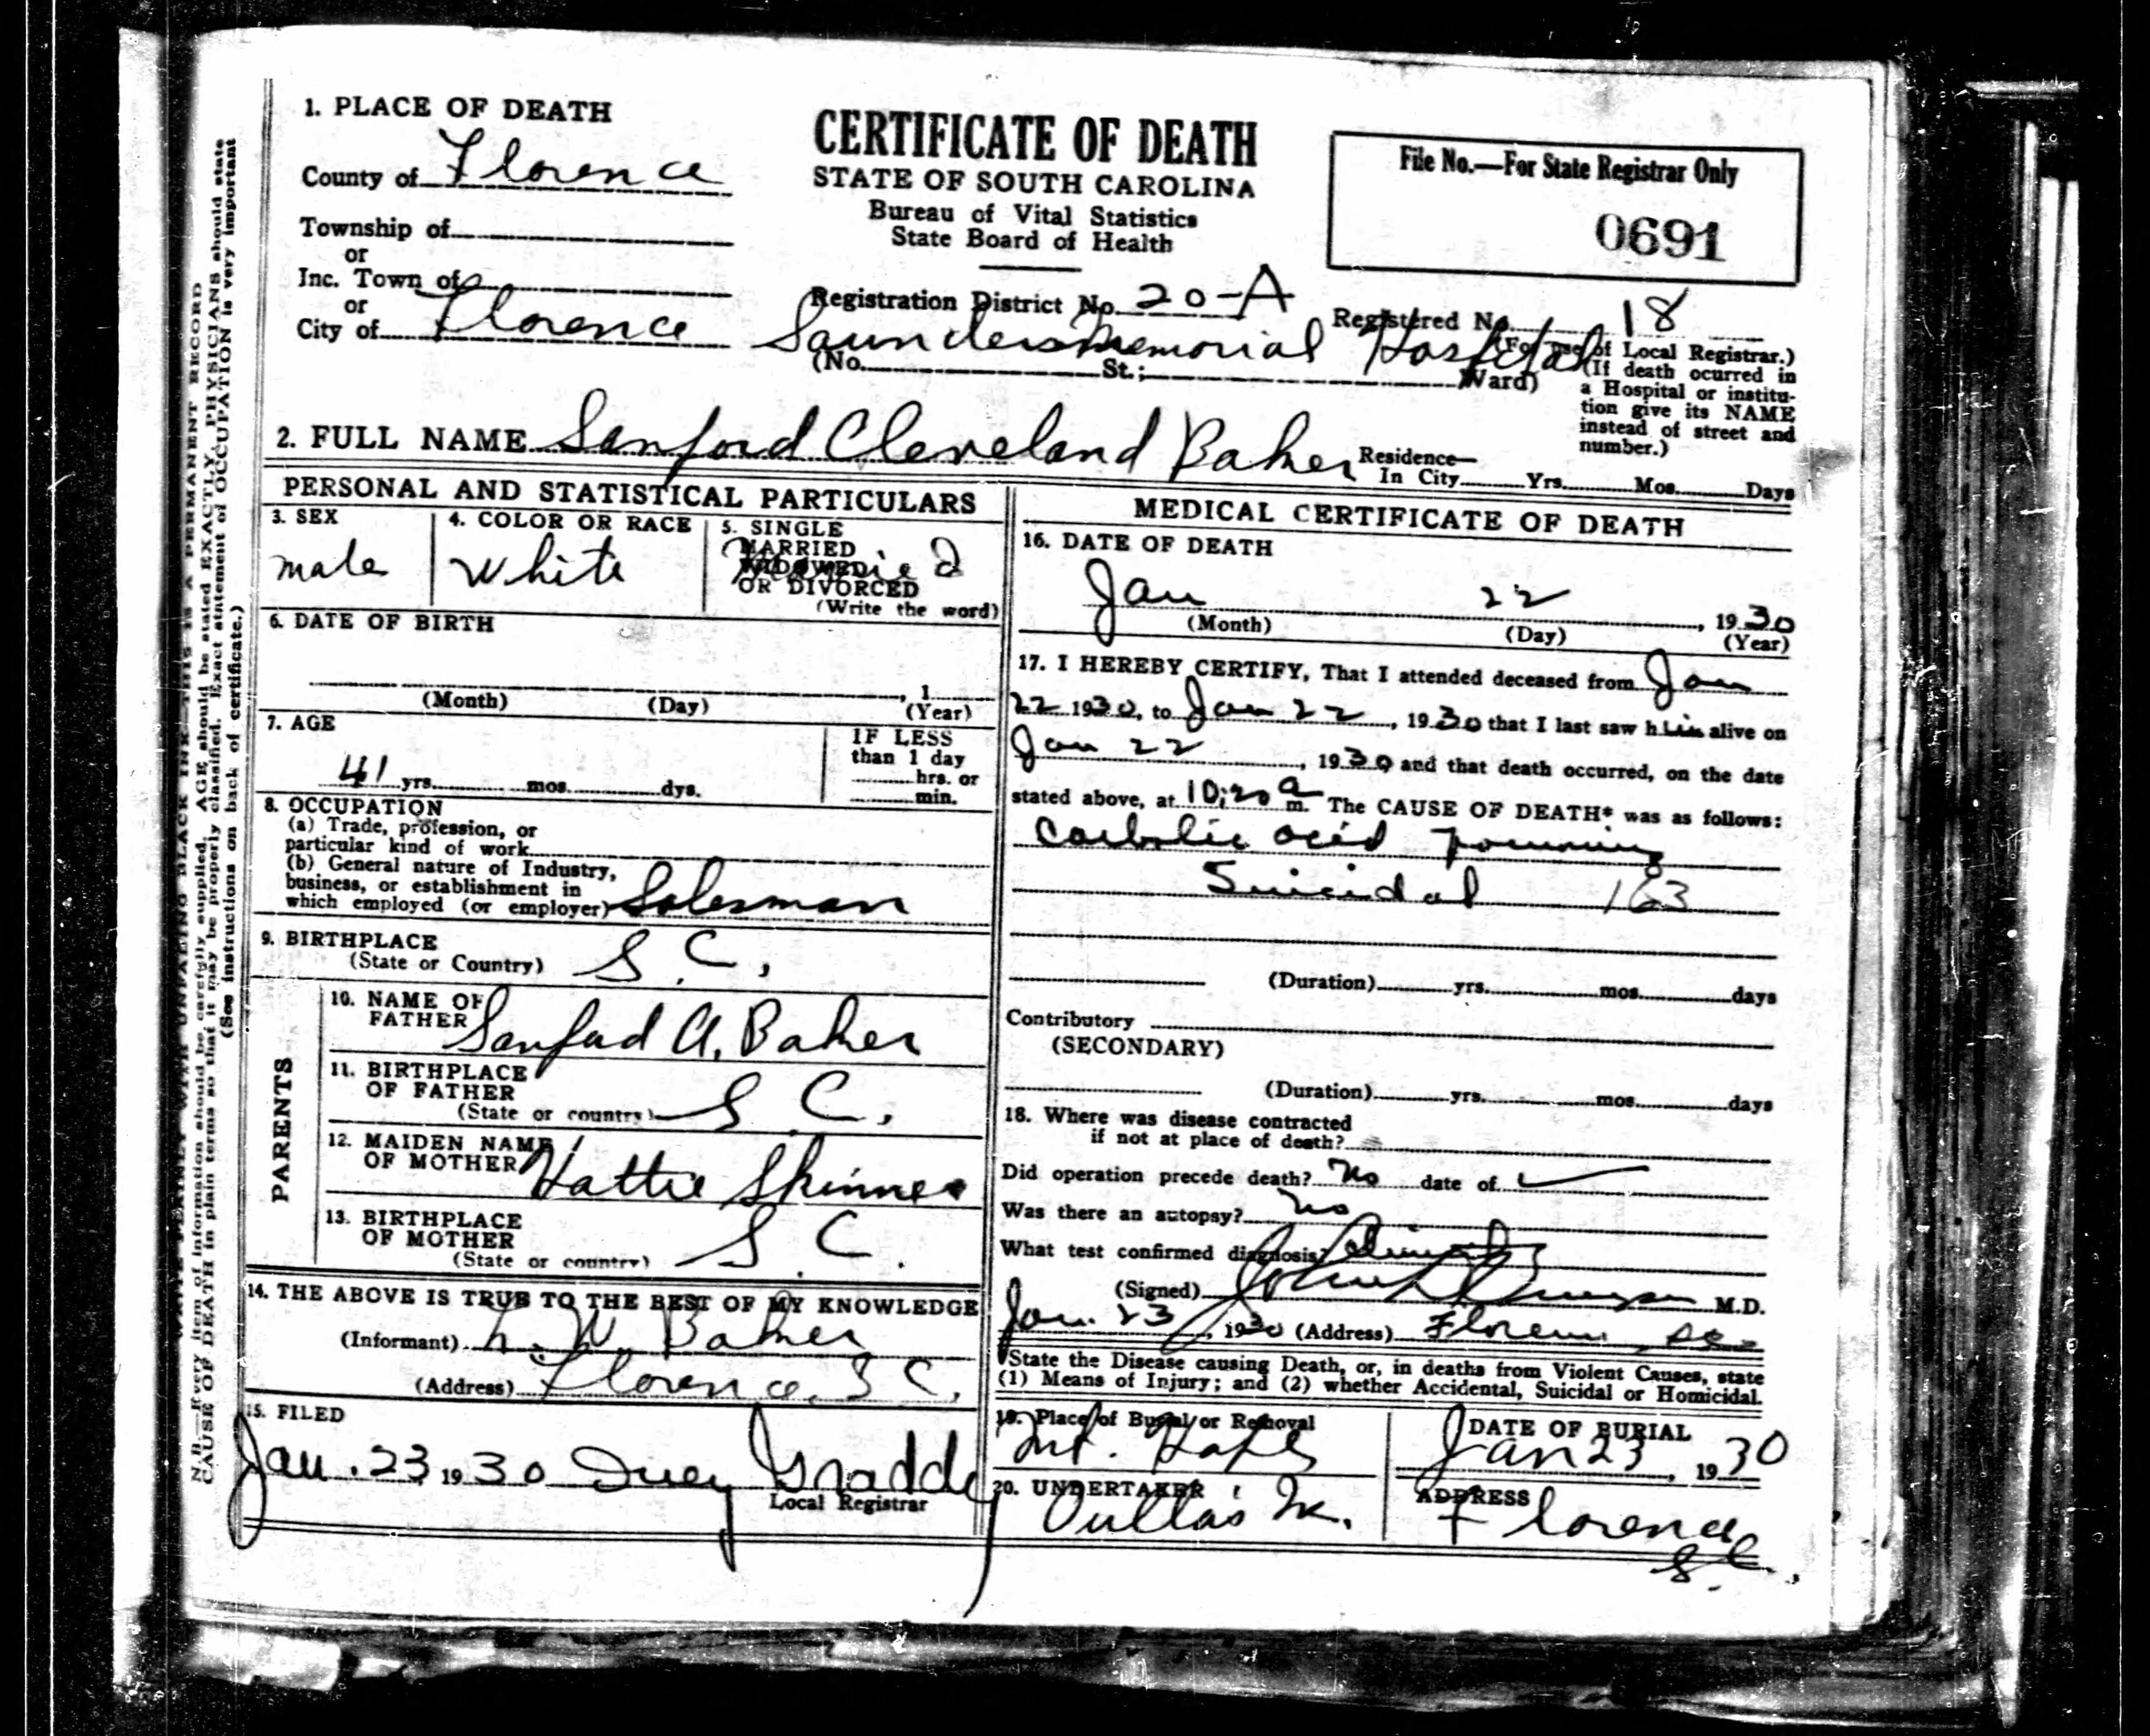 1. PLACE OF DEATH
County of Florence
Township of
or
Inc. Town of
or
City of Florence
CERTIFICATE OF DEATH
STATE OF SOUTH CAROLINA
Bureau of Vital Statistics
State Board of Health
Registration District No. 20-A
File No.—For State Registrar Only
0691
Registered No. 18
(For use of Local Registrar.)
Saunders Memorial Hospital
(No. St.; Ward)
(If death ocurred in
a Hospital or institu-
tion give its NAME
instead of street and
number.)
2. FULL NAME Sanford Cleveland Baker
Residence—
In City Yrs. Mos. Days
PERSONAL AND STATISTICAL PARTICULARS
3. SEX
male
4. COLOR OR RACE
White
5. SINGLE
MARRIED
WIDOWED
OR DIVORCED
(Write the word)
Married
6. DATE OF BIRTH
, 1
(Month) (Day) (Year)
7. AGE
41 yrs. mos. dys.
IF LESS
than 1 day
hrs. or
min.
8. OCCUPATION
(a) Trade, profession, or
particular kind of work
(b) General nature of Industry,
business, or establishment in
which employed (or employer) Salesman
9. BIRTHPLACE
(State or Country) S. C.,
PARENTS
10. NAME OF
FATHER Sanford A. Baker
11. BIRTHPLACE
OF FATHER
(State or country) S. C.,
12. MAIDEN NAME
OF MOTHER Hattie Skinner
13. BIRTHPLACE
OF MOTHER
(State or country) S. C.
14. THE ABOVE IS TRUE TO THE BEST OF MY KNOWLEDGE
(Informant) W. Baker
(Address) Florence, S C.
15. FILED
Jan. 23, 1930
Local Registrar
MEDICAL CERTIFICATE OF DEATH
16. DATE OF DEATH
Jan 22, 1930
(Month) (Day) (Year)
17. I HEREBY CERTIFY, That I attended deceased from Jan
22 1930, to Jan 22, 1930 that I last saw him alive on
Jan 22, 1930 and that death occurred, on the date
stated above, at 10:20 a m. The CAUSE OF DEATH* was as follows:
Carbolic acid poisoning
Suicidal 163
(Duration) yrs. mos. days
Contributory
(SECONDARY)
(Duration) yrs. mos. days
18. Where was disease contracted
if not at place of death?
Did operation precede death? No date of
Was there an autopsy? no
What test confirmed diagnosis?
(Signed) M.D.
Jan. 23, 1930 (Address) Florence
*State the Disease causing Death, or, in deaths from Violent Causes, state
(1) Means of Injury; and (2) whether Accidental, Suicidal or Homicidal.
19. Place of Burial or Removal
Mt. Hope
DATE OF BURIAL
Jan 23, 1930
20. UNDERTAKER
ADDRESS
Florence
S. C.,
WRITE PLAINLY WITH UNFADING BLACK INK—THIS IS A PERMANENT RECORD
N.B.—Every item of information should be carefully supplied. AGE should be stated EXACTLY. PHYSICIANS should state
CAUSE OF DEATH in plain terms so that it may be properly classified. Exact statement of OCCUPATION is very important
(See instructions on back of certificate.)